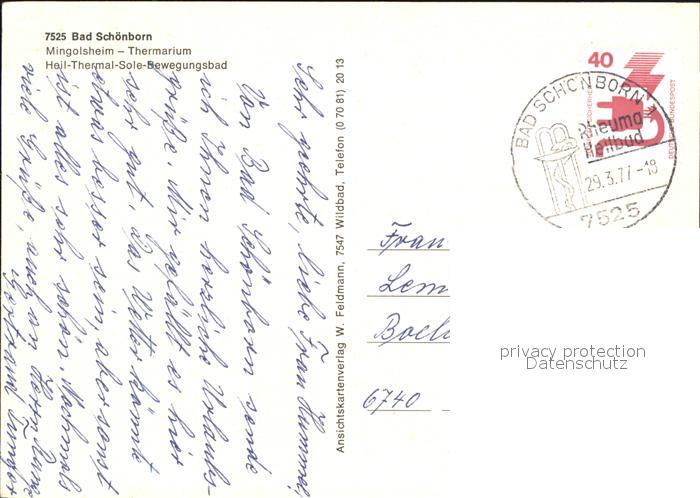 7525 Bad Schönborn
Mingolsheim – Thermarium
Heil-Thermal-Sole-Bewegungsbad
Sehr geehrte, liebe Frau
Von Bad Schönborn sende
ich Ihnen herzliche Urlaubs-
grüße. Mir gefällt es hier
sehr gut, das Wetter könnte
etwas besser sein, aber sonst
ist alles sehr schön. Nochmals
viele Grüße, auch an Herrn
Ansichtskartenverlag W. Feldmann, 7547 Wildbad, Telefon (0 70 81) 20 13
40
DEUTSCHE BUNDESPOST
BAD SCHÖNBORN 1
Rheuma
Heilbad
29.3.77-18
7525
Frau
Lem
6740
privacy protection
Datenschutz